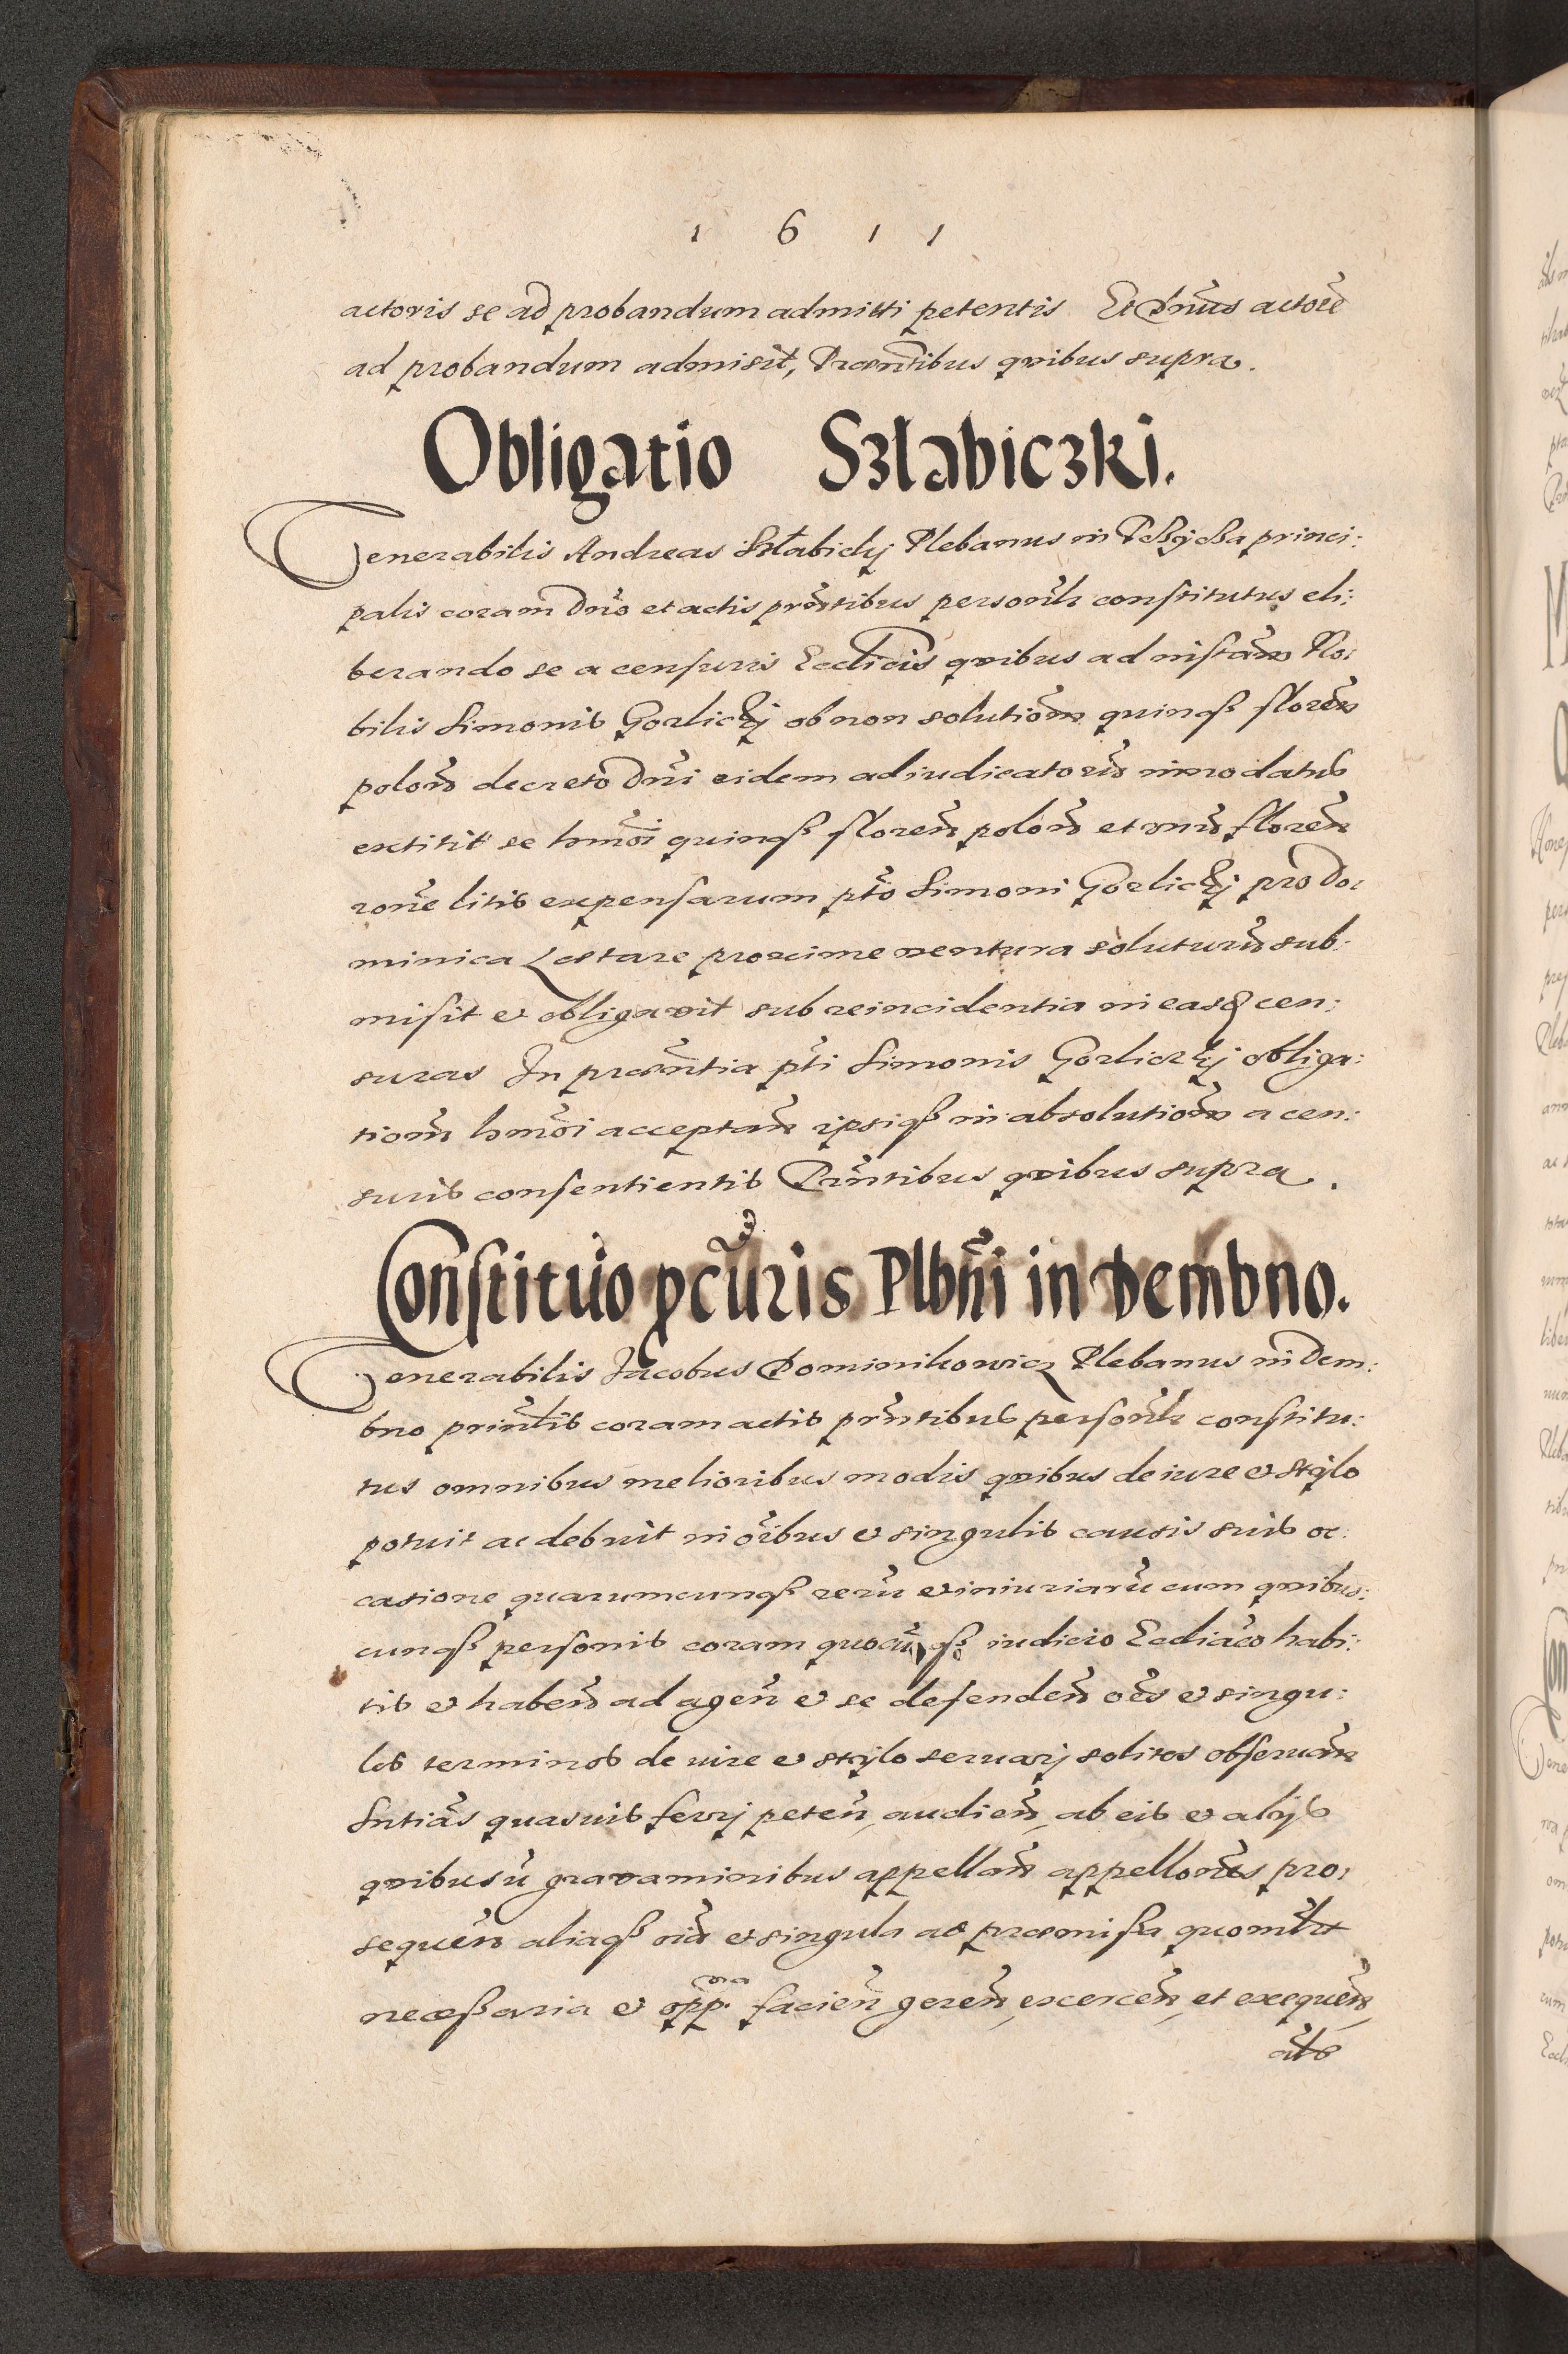 1 6 1 1
actoris se ad probandum admitti petentis Et Dnus actore
ad probandum admisit, Præntibus quibus supra.
Obligatio Szlabiczki.
Venerabilis Andreas Szlabicky Plebanus in princi:
palis coram Dno et actis prntibus personlr constitutus eli:
berando se a censuris Ecclicis quibus ad instam No:
bilis Simonis Gorliczkj ob non solutiom quinqȝ floren
polon decreto Dni eidem adiudicatoru innodatus
extitit se hmoi quinqȝ floren polon et unu floren
rone litis expensarum pto Simoni Gorliczkj pro Do:
minica Lætare proxime ventura soluturu sub:
misit et obligavit sub reincidentia in easd cen:
suras In præntia pti Simonis Gorliczkj obliga:
tiom hmoi acceptan ipsiqȝ in absolutiom a cen:
suris consentientis Prntibus quibus supra.
Constituo pcuris Plbni in Dembno.
Venerabilis Jacobus Dominikowicz Plebanus in Dem:
bno prinlis coram actis prntibus personlr constitu:
tus omnibus melioribus modis quibus de iure et stylo
potuit ac debuit in oibus et singulis causis suis oc:
casione quarumcunqȝ reru et iniuriaru cum quibus:
cunqȝ personis coram quocuqȝ iudicio Eccliaco habi:
tis et haben ad agen et se defenden oes et singu:
los terminos de iure et stylo seruarj solitos obseruan
Sntias quasuis ferrj peten, audien, ab eis et alijs
quibusu gravaminibus appellan appellones pro:
sequen aliaqȝ oia et singula ad præmissa quomlt
necessaria et opp.na facien geren, excercen, et exequen,
als